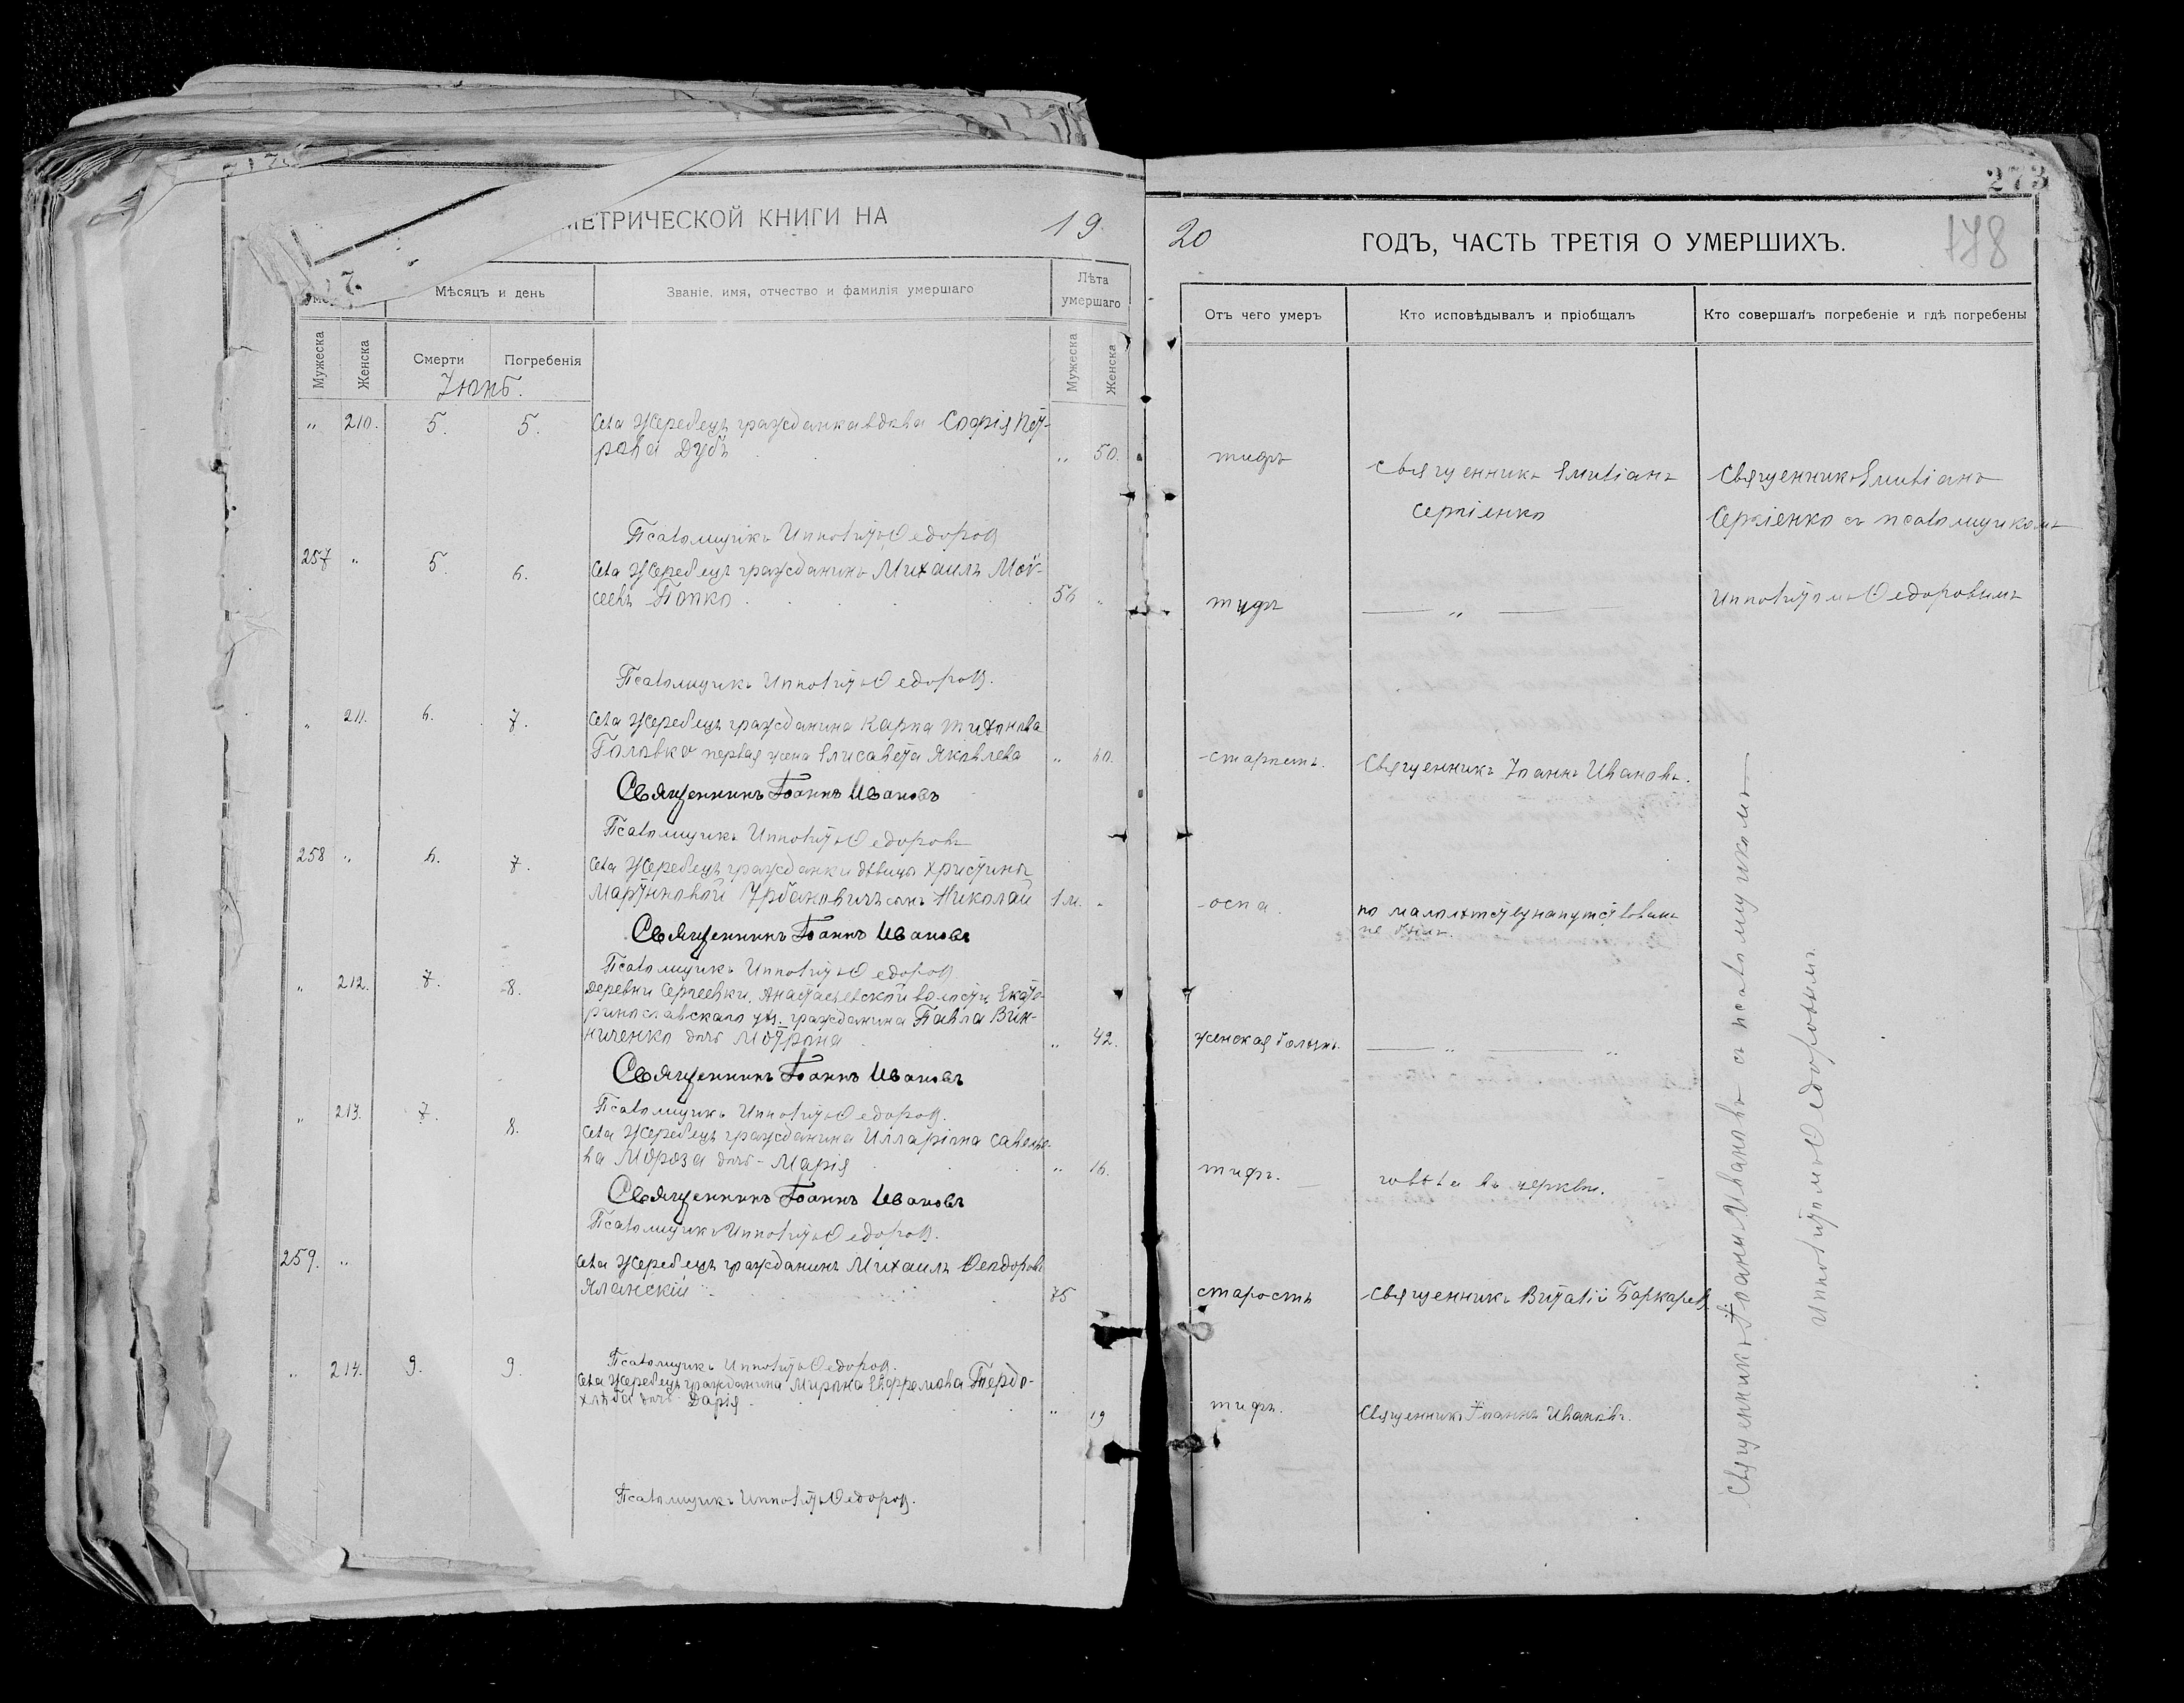 МЕТРИЧЕСКОЙ КНИГИ НА 19
Мѣсяцъ и день
Званіе, имя, отчество и фамилія умершаго
Лѣта умершаго
Мужеска
Женска
Смерти
Погребенія
Мужеска
Женска
Іюнь.
" 210. 5. 5. Села Жеребецъ гражданка вдова Софія Пет-
рова Дубъ " 50.
Псаломщикъ Ипполитъ Ѳедоровъ
257 " 5. 6. Села Жеребецъ гражданинъ Михаилъ Мои-
сеевъ Попко 56 "
Псаломщикъ Ипполитъ Ѳедоровъ.
" 211. 6. 7. Села Жеребецъ гражданина Карпа Тихонова
Головко первая жена Елисавета Яковлева " 60.
Священникъ Іоаннъ Ивановъ
Псаломщикъ Ипполитъ Ѳедоровъ
258 " 6. 7. Села Жеребецъ гражданки дѣвицы Христины
Мартыновой Урбановичъ сынъ Николай 1 м. "
Священникъ Іоаннъ Ивановъ
Псаломщикъ Ипполитъ Ѳедоровъ
" 212. 7. 8. Деревни Сергеевки, Анастасьевской волости, Екате-
ринославскаго уѣз. гражданина Павла Вин-
ниченко дочь Мотрона " 42.
Священникъ Іоаннъ Ивановъ
Псаломщикъ Ипполитъ Ѳедоровъ.
" 213. 7. 8. Села Жеребецъ гражданина Илларіона Савелье-
ва Мороза дочь - Марія " 16.
Священникъ Іоаннъ Ивановъ
Псаломщикъ Ипполитъ Ѳедоровъ.
259. " Села Жеребецъ гражданинъ Михаилъ Ѳеодоровъ
Яланскій 75
Псаломщикъ Ипполитъ Ѳедоровъ.
" 214. 9. 9. Села Жеребецъ гражданина Мирона Евфремова Твердо-
хлѣба дочь Дарія " 19
Псаломщикъ Ипполитъ Ѳедоровъ.
273
20 ГОДЪ, ЧАСТЬ ТРЕТІЯ О УМЕРШИХЪ. 178
Отъ чего умеръ
Кто исповѣдывалъ и пріобщалъ
Кто совершалъ погребеніе и гдѣ погребены
тифъ
Священникъ Емиліанъ
Сергіенко
Священникъ Емиліанъ
Сергіенко съ псаломщикомъ
Ипполитомъ Ѳедоровымъ
тифъ "
старость. Священникъ Іоаннъ Ивановъ.
оспа. по малолѣтству напутствованъ
не былъ.
женская болѣзнь. " "
тифъ. говѣла въ церкви.
старость Священникъ Виталій
тифъ. Священникъ Іоаннъ Ивановъ.
Священникъ Іоаннъ Ивановъ съ псаломщикомъ
Ипполитомъ Ѳедоровымъ.